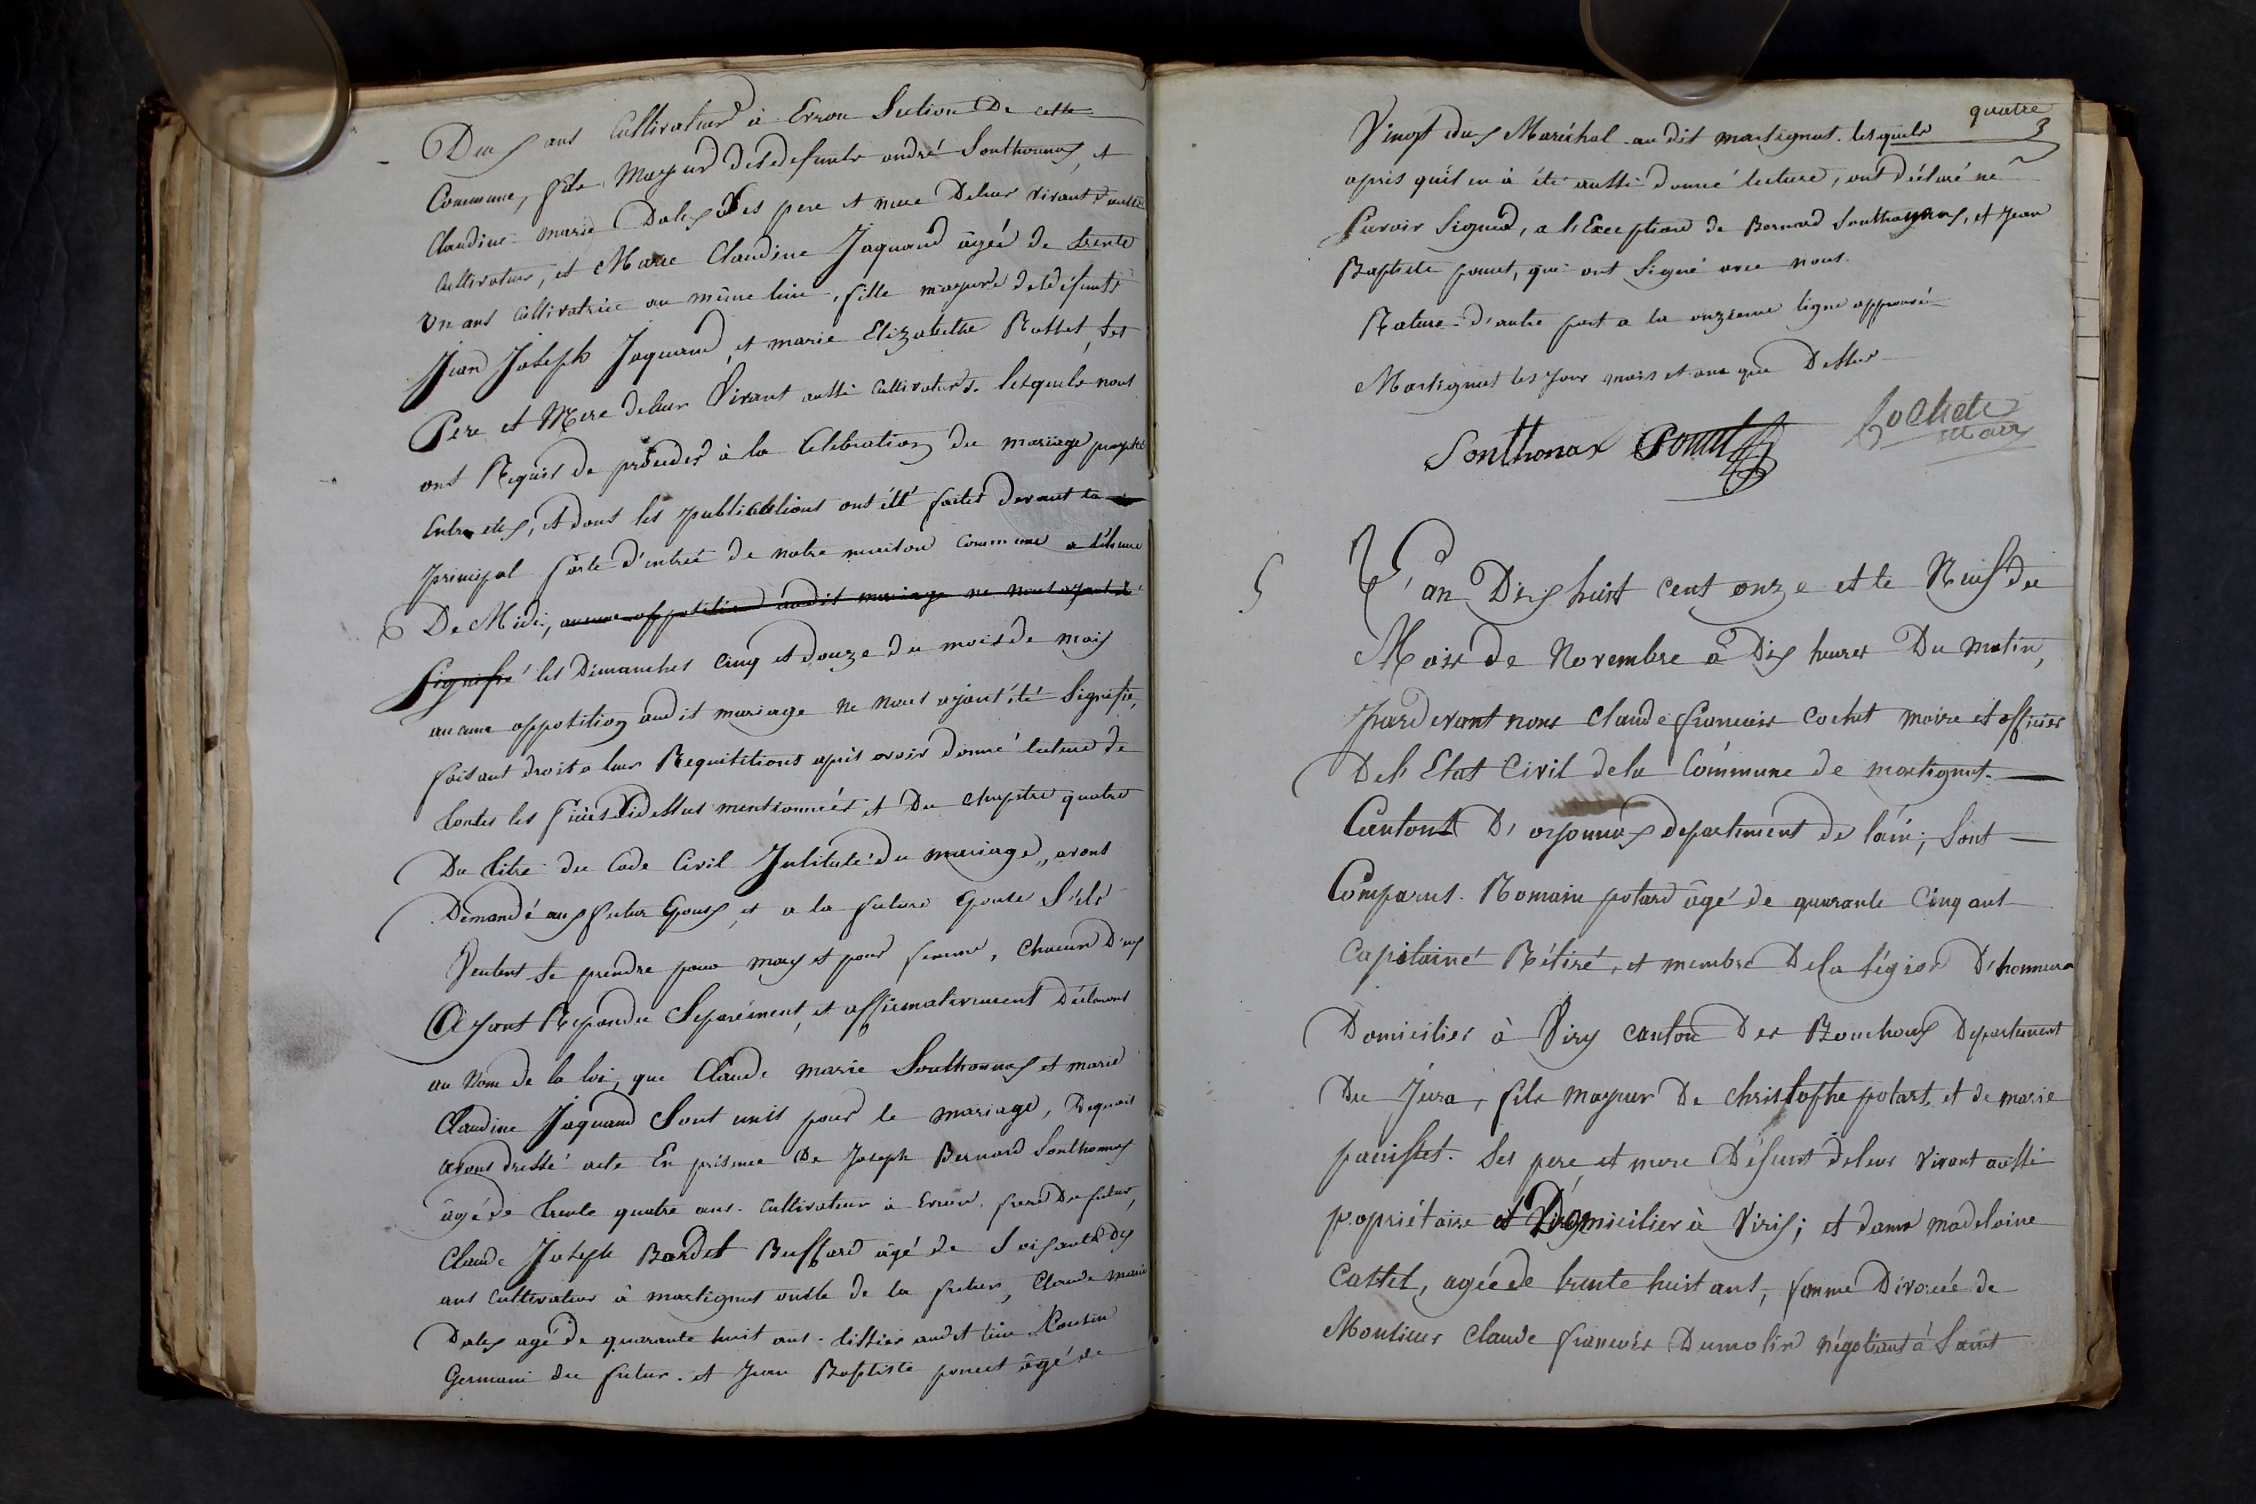 Deux ans Cultivateur à Erzon Section De cette
Commune, fils Mayeur des defunts andré Sonthonnax, et
Claudine marie Dalex ses pere et mere Deleur vivant aussi
Cultivateur, et Marie Claudine Jaquand âgée de trente
Un ans Cultivatrice au même lieu, fille mayeure des défunts
Jean Joseph Jaquand, et marie Elizabethe Rosset, ses
Pere et Mere deleur Vivant aussi Cultivateurs. lesquels nous
ont Requis de procéder à la Célébration du mariage projeté
Entre eux, et dont les publications ont été faites devant la
principal porte d'entrée de notre maison Commune a l'heure
De Midi, aucune opposition audit mariage ne nous ayant été
signifié les Dimanches Cinq et douze du mois de mois
aucune opposition audit mariage ne nous ayant été signifié,
faisant droit a leur Requisitions après avoir donné lecture de
toutes les pièces Cidessus mentionnées et Du chapitre quatre
Du titre du Code Civil Intitulé du mariage, avons
Demandé aux futur Epoux, et a la future Epouse S'ils
Veulent se prendre pour mary et pour femme, chacun D'eux
Ayant Repondu Separément, et affirmativement Déclarons
au Nom de la loi, que Claude marie Sonthonnax et marie
Claudine Jaquand Sont unis pour le mariage, Dequoi
avons dressé acte En présence De Joseph Bernard Sonthonnax
âgé de trente quatre ans. Cultivateur à Erzon. frere Du futur,
Claude Joseph Bardet Buffard âgé de Soixante dix
ans Cultivateur à martignat oncle de la future, Claude Marie
Dalex agé de quarante huit ans. tissier audit lieu Cousin
Germain du futur. et Jean Baptiste poncet âgé de
quatre
3
Vingt deux Maréchal audit martignat. lesquels
après qu'il en à été aussi donné lecture, ont déclaré ne
Savoir Signer, a l'Exception de Bernard Sonthonnax, et Jean
Baptiste poncet, qui ont Signé avec nous.
Rature d'autre part a la onzieme ligne approuvée
Martignat les Jour mois et ans que Dessus
Sonthonax Poncet Cochet
Maire
5
L'an Dix huit cent onze et le Neuf du
Mois de Novembre à Dix heures Du matin,
pardevant nous Claude francois Cochet maire et officier
Del'Etat Civil dela Commune de martignat.
Canton D'oyonnax departement de l'ain; sont
Comparus. Romain potard âgé de quarante Cinq ans
Capitaine Rétiré, et membre Dela légion D'honneur
Domicilier à Viry canton Des Bouchoux Departement
Du Jura, fils mayeur De christophe potart, et de marie
ses pere et mere Défunt deleur vivant aussi
popriétaire et Domicilier à Virix; et dame madelaine
Cattet, agée de trente huit ans, femme Divorcée de
Monsieur Claude francois Dumolin négotiant à Saint